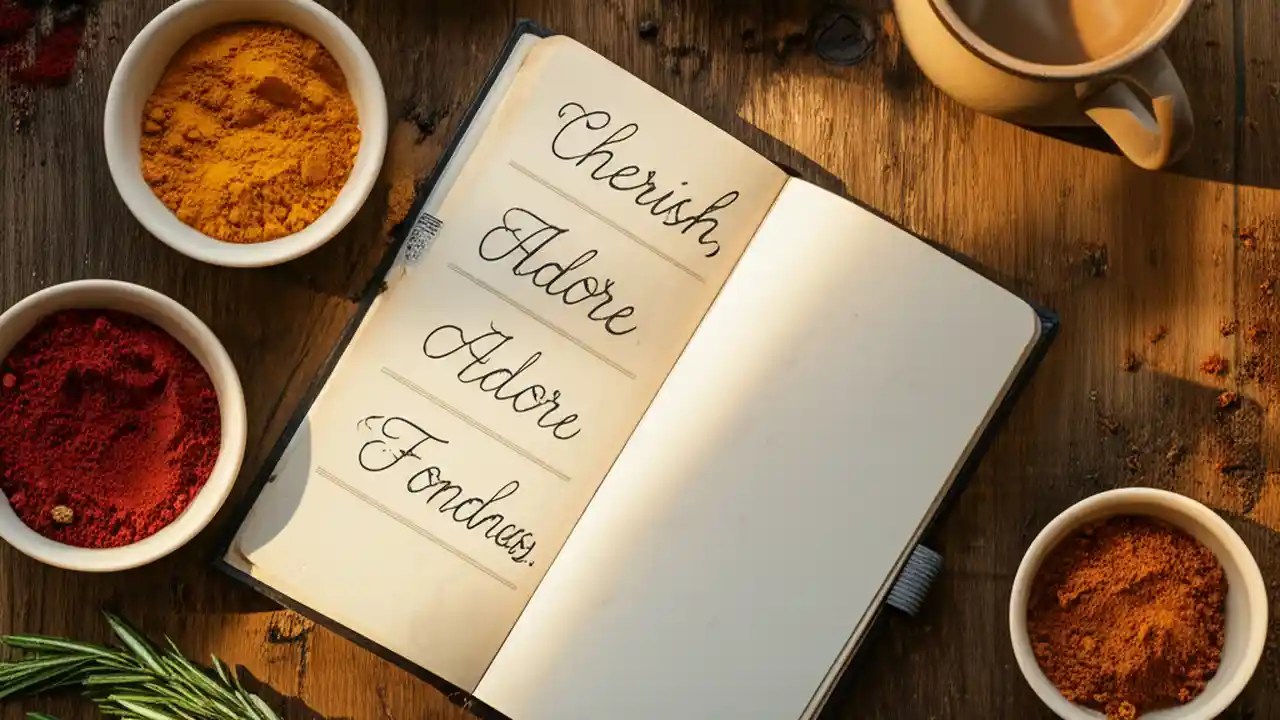 Cherish,
Adore
Adore
Fondness.